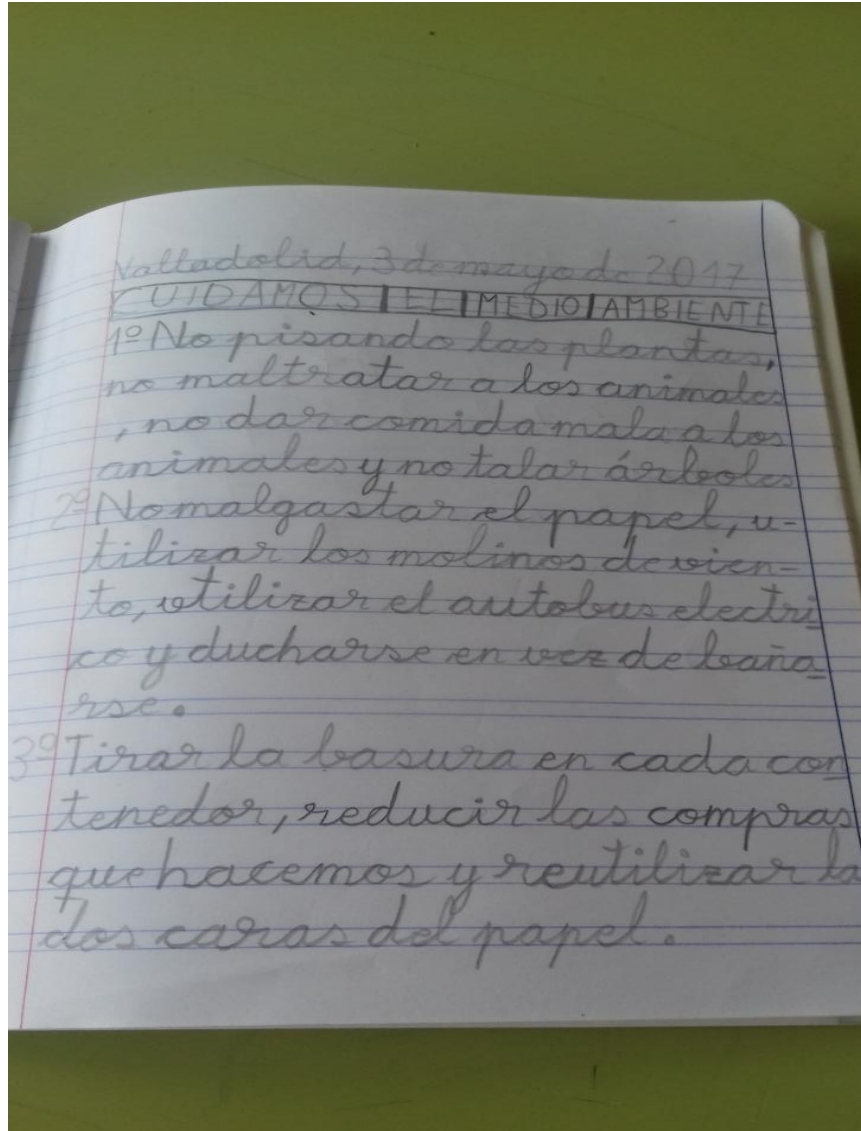 Valladolid, 3 de mayo de 2017
CUIDAMOS EL MEDIO AMBIENTE
1º No pisando las plantas,
no maltratar a los animales
, no dar comida mala a los
animales y no talar árboles
2º No malgastar el papel, u-
tilizar los molinos de vien-
to, utilizar el autobus electri
co y ducharse en vez de baña
rse.
3º Tirar la basura en cada con
tenedor, reducir las compras
que hacemos y reutilizar la
dos caras del papel.